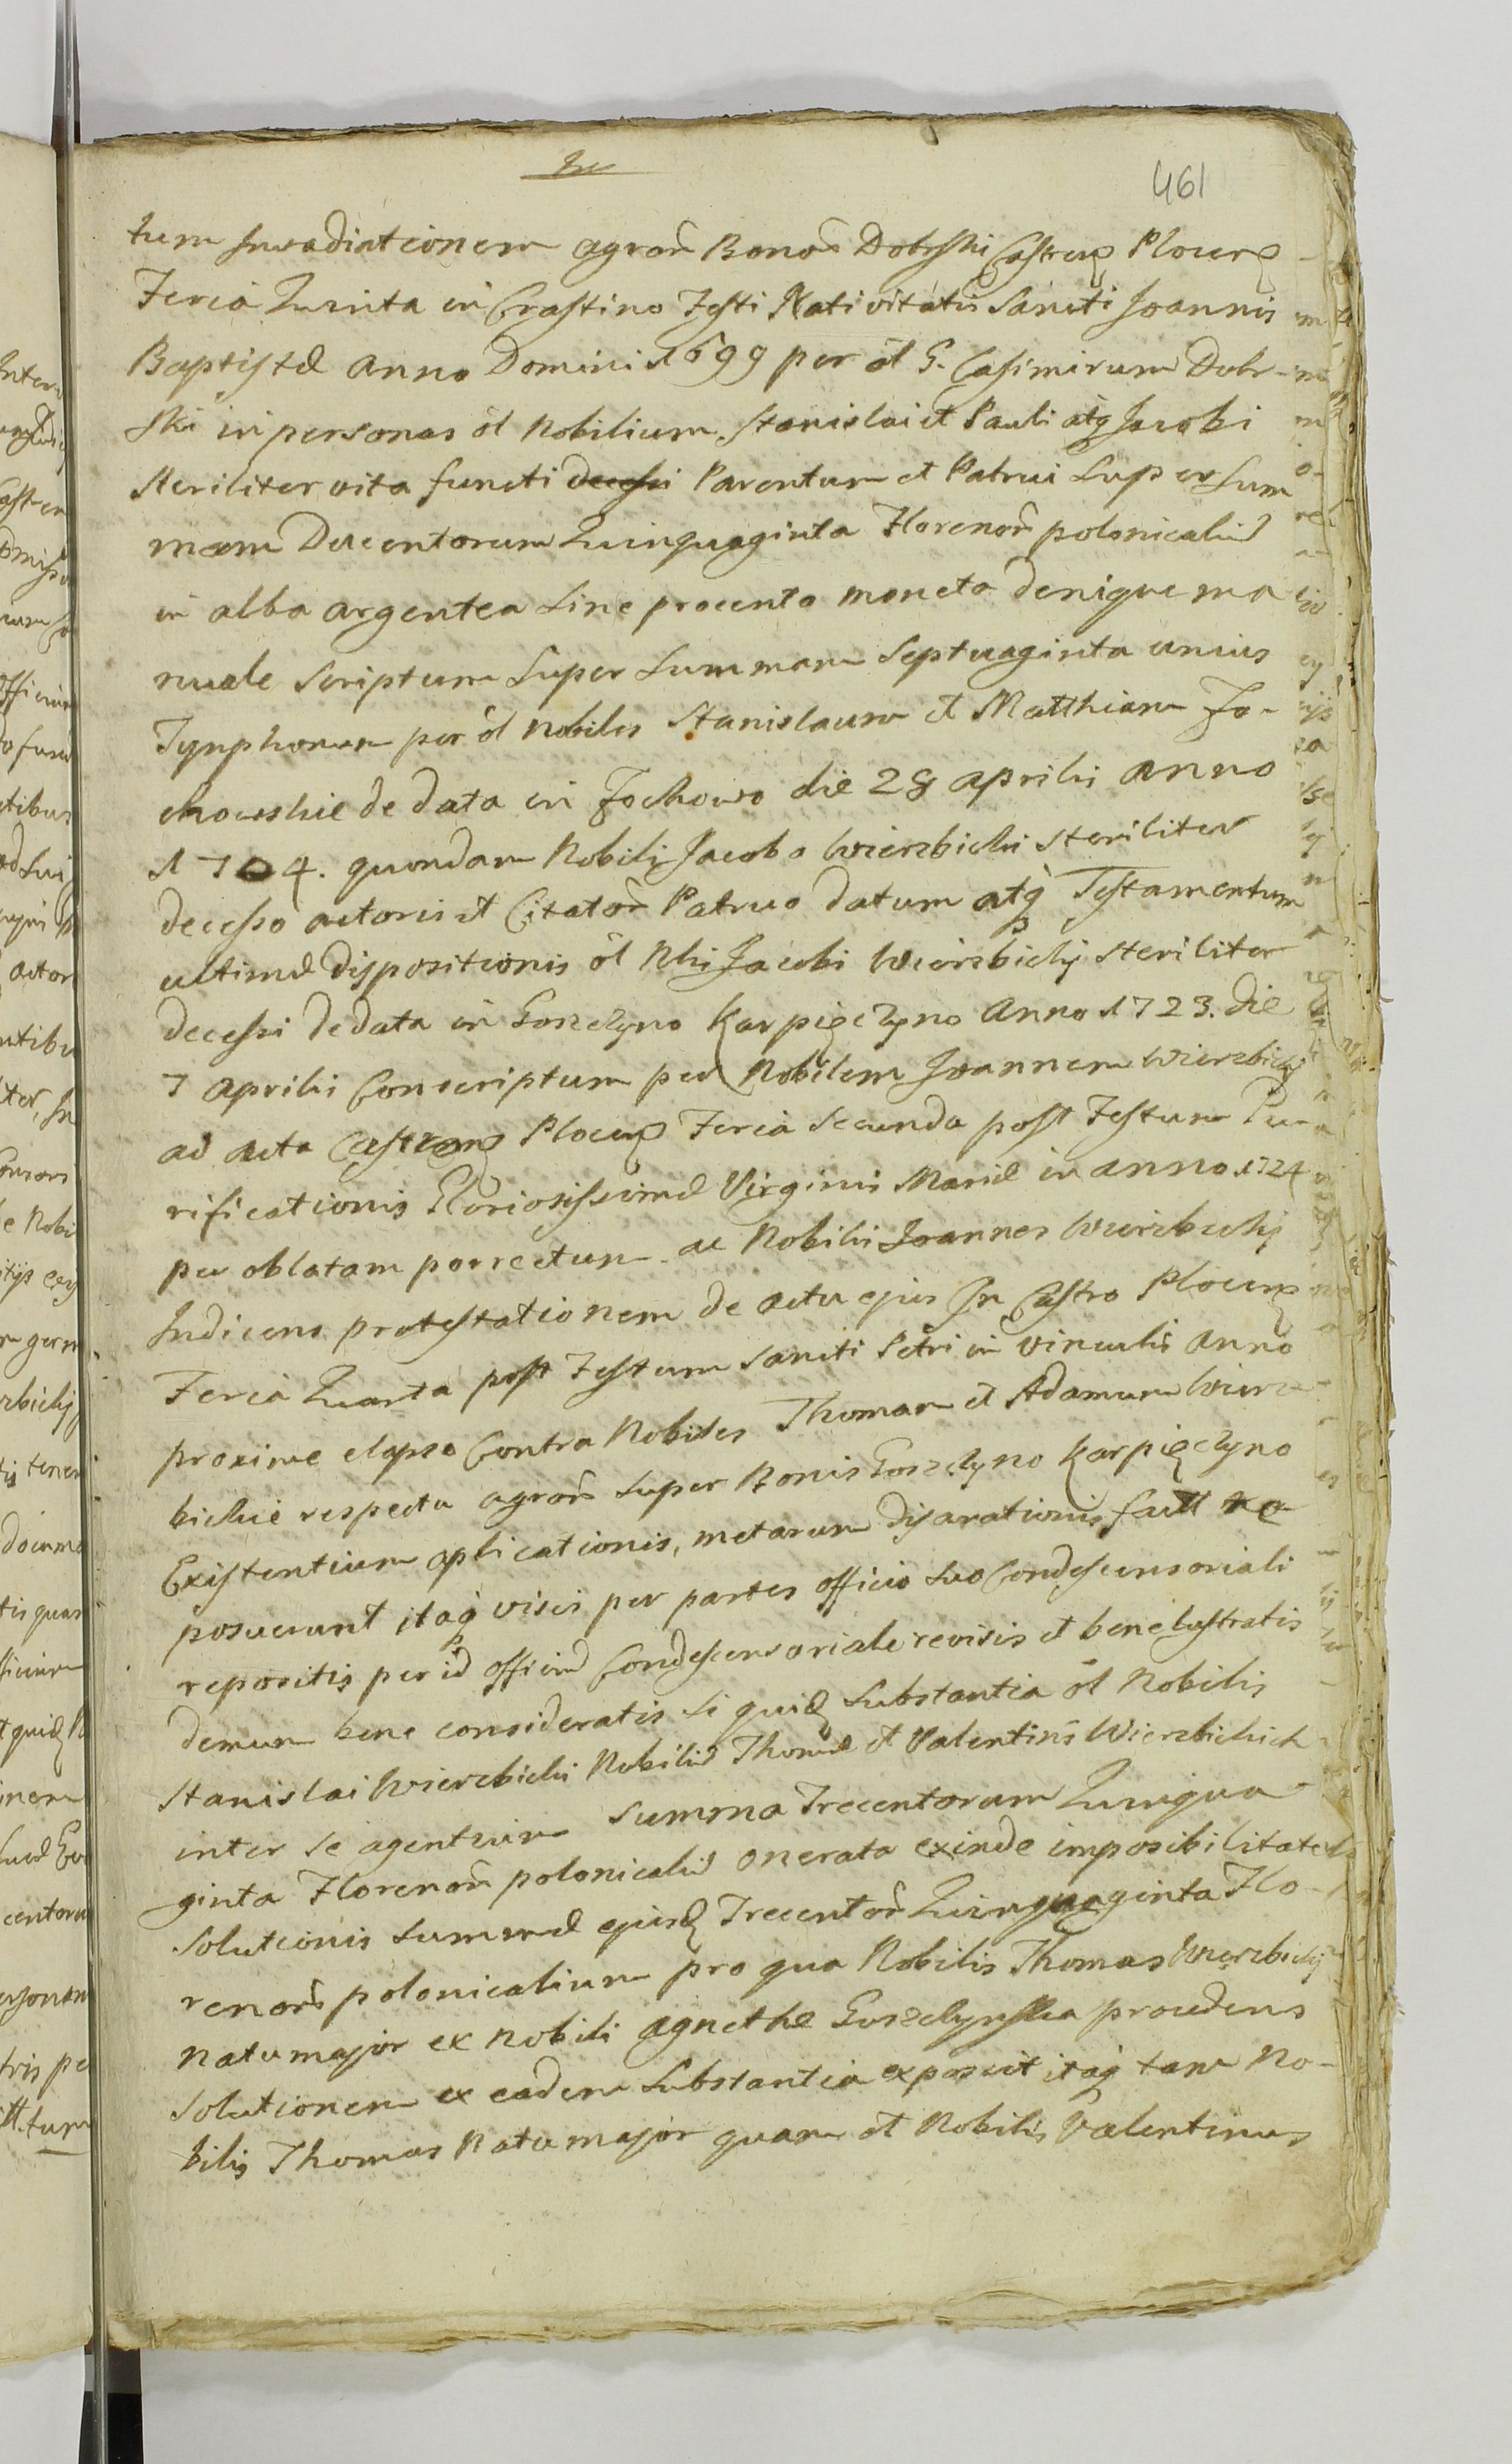 461
tum Invadiationem agroru Bonoru Dobrski Castren Plocen
Feria Quinta in Crastino Festi Nativitatis Sancti Joannis
Baptistæ anno Domini 1699 per ol G. Casimirum Dobr-
ski in personas ol Nobilium Stanislai et Pauli atq Jacobi
steriliter vita functi decessi Parentum et Patrui super sum
mam Ducentorum Quinquaginta Florenoru polonicaliu
in alba argentea sine procento moneta denique ma
nuale scriptum super summam septuaginta unius
Tynphonum per ol nobiles Stanislaum et Matthiam Zo-
chowskie de data in Zochowo die 28 aprilis anno
1704. quondam Nobili Jacobo Wierzbicki steriliter
decesso actoris et Citatoru Patruo datum atq Testamentum
ultimæ dispositionis ol Nbi Jacobi Wierzbicky steriliter
decessi de data in Goszczyno Karpięczyno Anno 1723. die
7 Aprilis Conscriptum per Nobilem Joannem Wierzbicky
ad acta Castren Plocen Feria secunda post Festum Pu-
rificationis Gloriosissimæ Virginis Mariæ in anno 1724
per oblatam porrectum ac Nobilis Joannes Wierzbicky
Indicens protestationem de actu ejus In Castro Plocen
Feria Quarta post Festum Sancti Petri in vinculis Anno
proxime elapso Contra Nobiles Thomam et Adamum Wierz-
bickie respectu agroru super Bonis Goszczyno Karpięczyno
Existentium aplicationis, metarum disarationis fact re
posuerunt itaq visis per partes officio suo Condescensoriali
repositis per id officiu Condescensoriale revisis et bene lustratis
demum bene consideratis si quid substantia ol Nobilis
Stanislai Wierzbicki Nobiliu Thomæ et Valentini Wierzbickich
inter se agentium summa Trecentorum Quinqua
ginta Florenoru polonicaliu onerata exinde imposibilitate
solutionis summæ ejusd Trecentoru Quinquaginta Flo-
renoru polonicalium pro qua Nobilis Thomas Wierzbicky
natu major ex nobili Agnethe Goszczynska procedens
solutionem ex eadem substantia exposcit itaq tam No-
bilis Thomas Natu major quam et Nobilis Valentinus